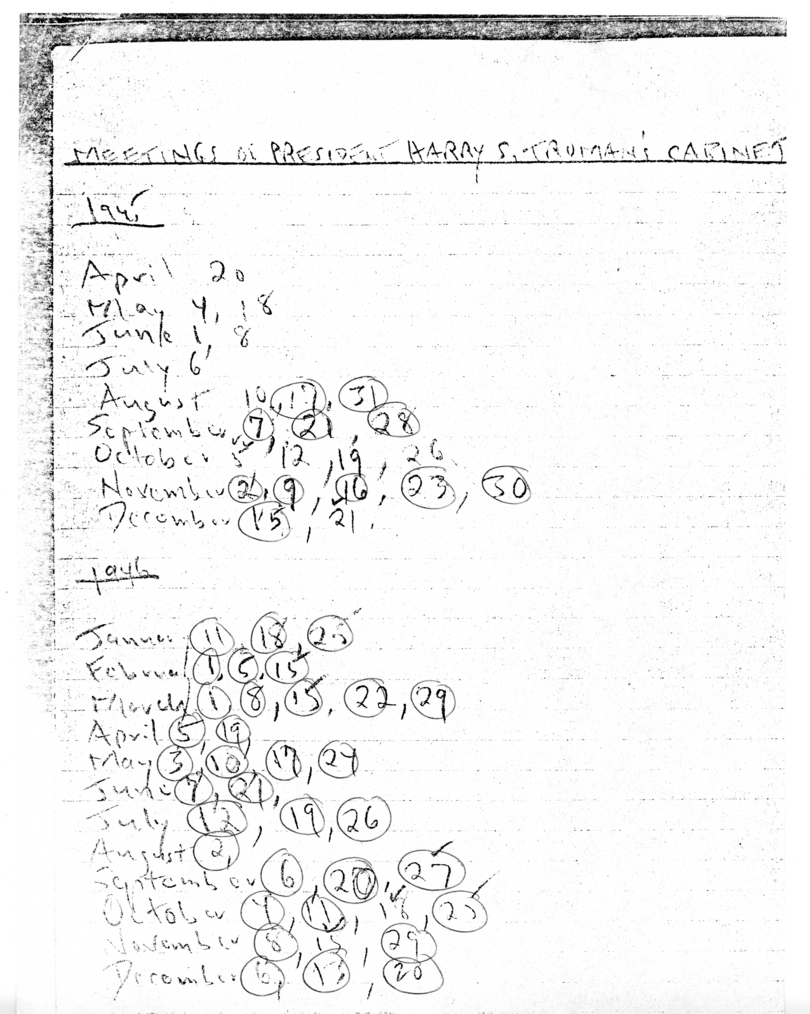 MEETINGS OF PRESIDENT HARRY S. TRUMAN'S CABINET
1945
April 20
May 4, 18
June 1, 8
July 6
August 10, 17, 31
September 7, 21, 28
October 5, 12, 19, 26
November 2, 9, 16, 23, 30
December 15, 21.
1946
Januar 11, 18, 25
Februar 1, 5, 15
March 1, 8, 15, 22, 29
April 5, 19,
May 3, 10, 17, 24
June 7, 21,
July 12, 19, 26
August 2,
September 6, 20, 27
October 4, 11, 18, 25
November 8, 15, 29
December 6, 13, 20